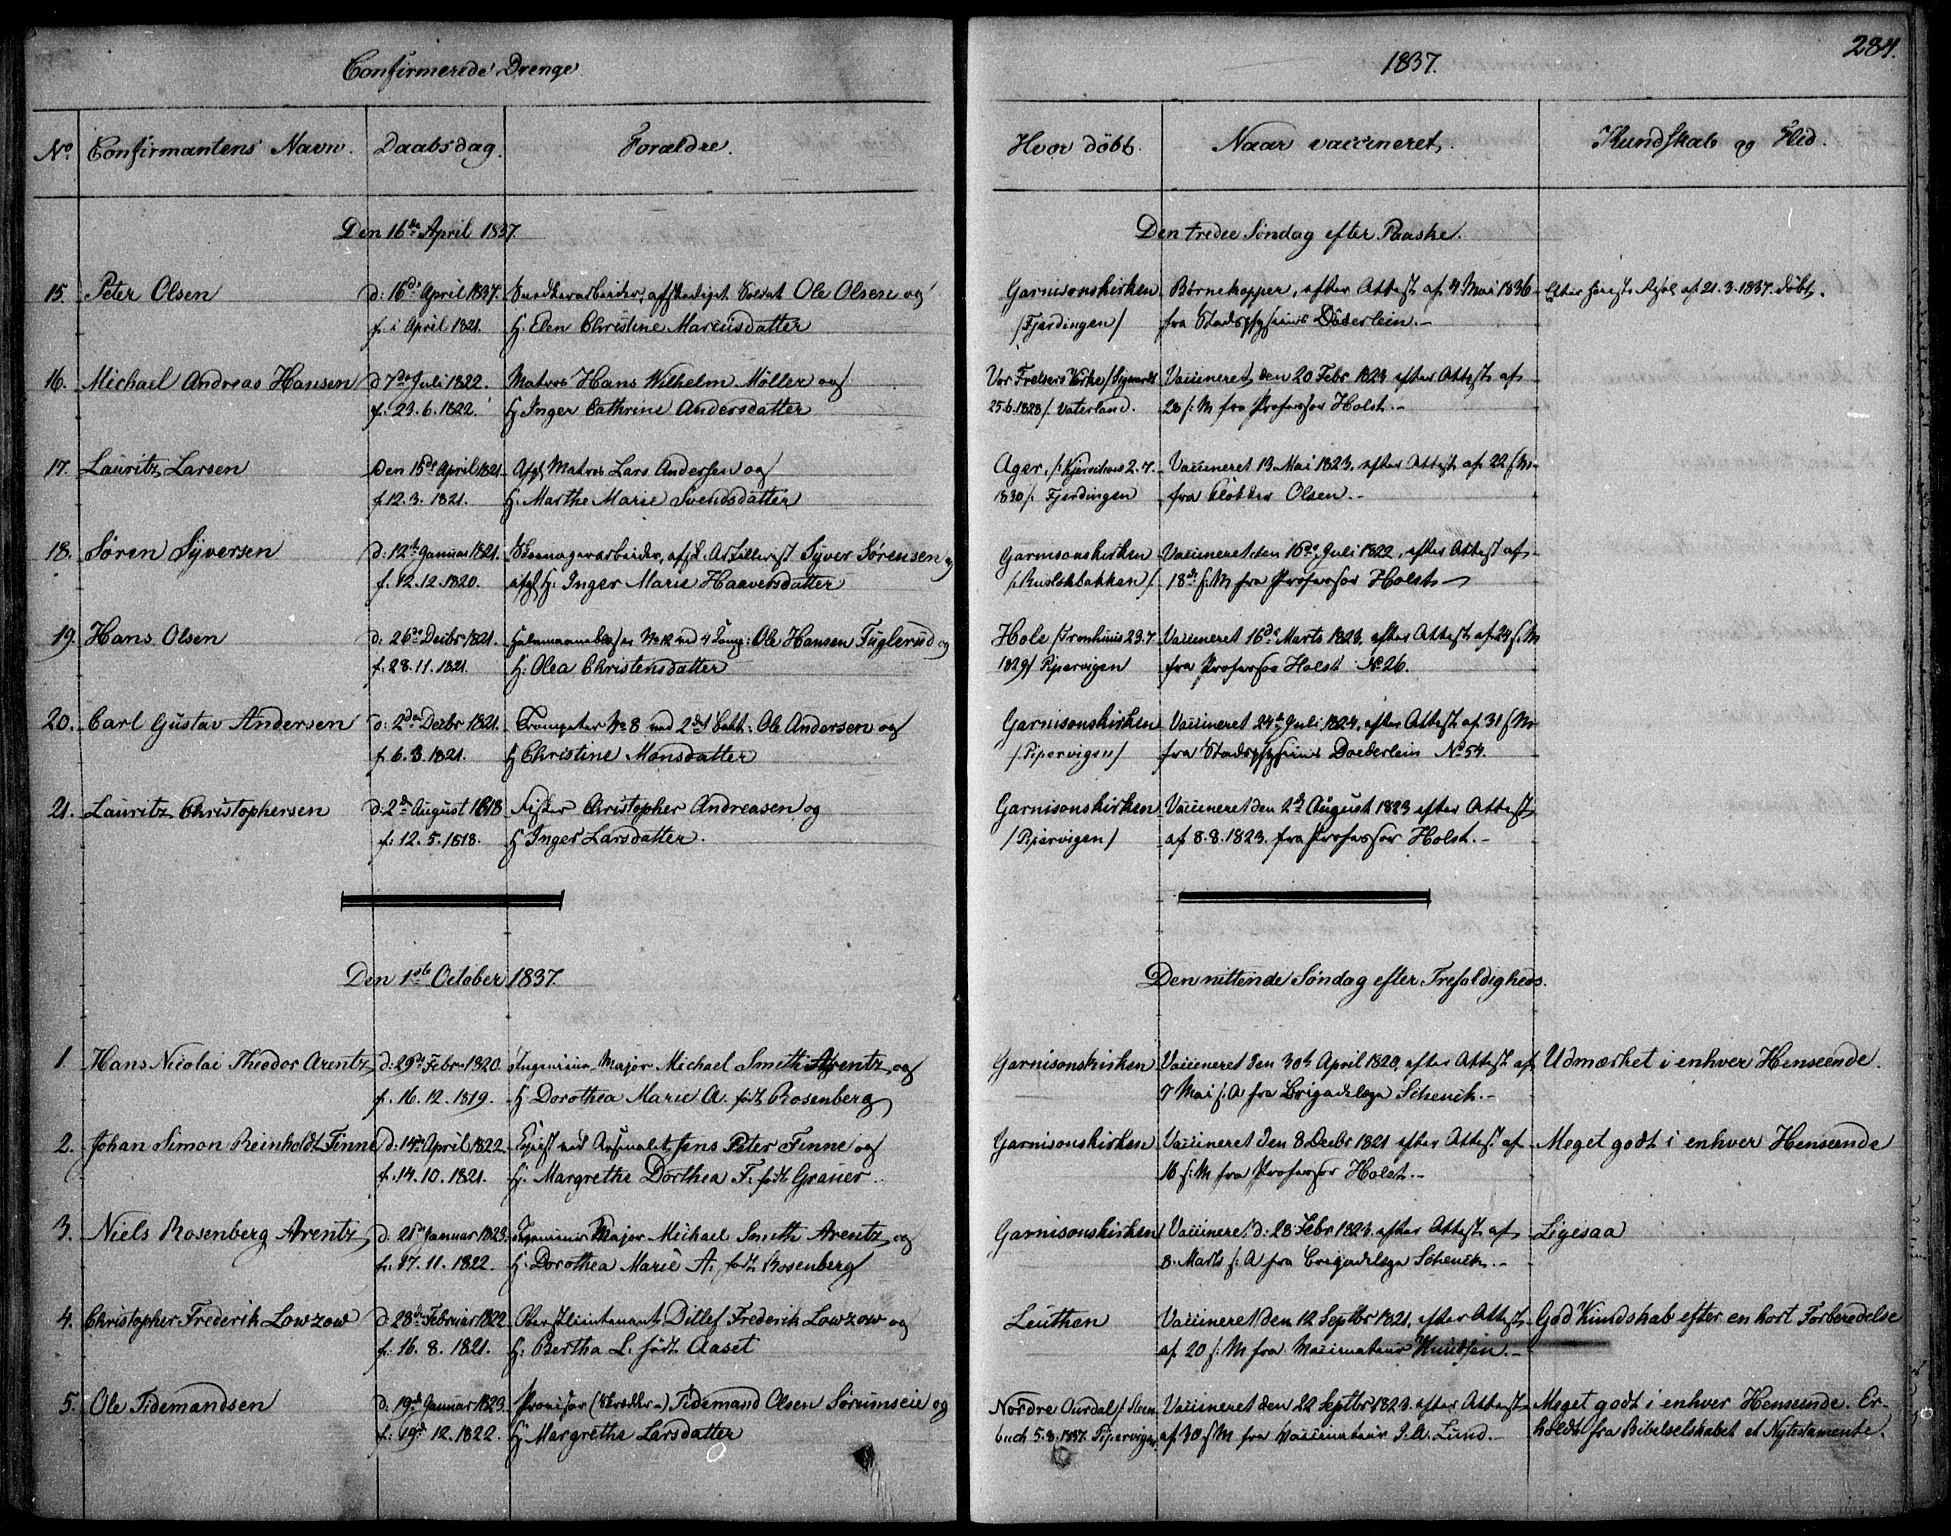 Confirmerede Drenge
1837.
284.
No Confirmantens Navn. Daabsdag. Forældre. Hvor döbt. Naar vaccineret. Kundskab og Flid.
Den 16de April 1837. Den tredie Søndag efter Paaske.
15. Peter Olsen d: 16de April 1837. afskediget Soldat Ole Olsen og Garnisonskirken Børnekopper, efter Attest af 4 Mai 1836 Efter Rescl af 21.3.1837 döbt.
f. i April 1821. H: Elen Christine Mariusdatter /Fjerdingen/ fra Stadsphysicus Döderlein.-
16. Michael Andreas Hansen d 7de Juli 1822. Matros Hans Wilhelm Möller og Vor Frelsers Kirke / Vaccineret den 20 Febr 1823 efter Attest af
f. 23.6.1822. H Inger Cathrine Andersdatter 25.6.1828/. Vaterland. 28 s:M fra Professor Holst.-
17. Lauritz Larsen den 15de April 1821. Afg. Matros Lars Andersen og Ager, 2.7. Vaccineret 13 Mai 1823, efter Attest af 22 s:M
f. 12.3.1821. H: Marthe Marie Svendsdatter 1830/. Fjerdingen fra Klokker Olsen.-
18. Søren Syversen d: 12te Januar 1821. afsk. Artillerist Syver Sørensen og Garnisonskirken Vaccineret den 16de Juli 1822, efter Attest af
f. 12.12.1820. afg. H: Inger Marie Haaversdatter /Ruslökbakken/ 18de s:M fra Professor Holst
19. Hans Olsen d: 26de Decbr 1821. No 12 ved 4 Comp: Ole Hansen Fuglerud og Hole 23.7. Vaccineret 16de Marts 1823, efter Attest af 24 s:M
f. 28.11.1821. H: Olea Christensdatter 1829/ Pipervigen fra Professor Holst No 26.
20. Carl Gustav Andersen d: 2den Decbr 1821. Trompeter No 8 ved Ole Andersen og Garnisonskirken Vaccineret 24de Juli 1824, efter Attest af 31 s:M
f. 6.3.1821. H Christine Monsdatter /Pipervigen/ fra Stadsphysicus Doederlein No 54.
21. Lauritz Christophersen d: 2den August 1818 Fisker Christopher Andreasen og Garnisonskirken Vaccineret den 2de August 1823 efter Attest
f: 12.5.1818. H Inger Larsdatter. /Pipervigen/ af 8.8.1823. fra Professor Holst.-
Den 1ste October 1837. Den nittende Søndag efter Trefoldigheds.
1. Hans Nicolai Theodor Arentz d: 29de Febr 1820. Ingenieur Major Michael Smith Arentz og Garnisonskirken Vaccineret den 30te April 1820, efter Attest af Udmærket i enhver Henseende.
f. 16.12.1819. H Dorothea Marie A. födt Rosenberg 7 Mai s:A fra Brigadelæge Schenck.-
2. Johan Simon Reinholdt Finne d: 14de April 1822. Copist ved Arsenalet Jens Peter Finne og Garnisonskirken Vaccineret den 8 Decbr 1821 efter Attest af Meget godt i enhver Henseende
f. 14.10.1821. H. Margrethe Dorthea F. födt Grauer 16 s:M fra Professor Holst.-
3. Niels Rosenberg Arentz d. 21de Januar 1823. Ingenieur Major Michael Smith Arentz og Garnisonskirken Vaccineret d: 28 Febr 1823 efter Attest af Ligesaa
f. 17.11.1822. H: Dorothea Marie A. födt Rosenberg 8. Marts s:A fra Brigadelæge Schenck.-
4. Christopher Frederik Lowzow d: 28de Februar 1822. Oberstlieutenant Ditlef Frederik Lowzow og Leuthen Vaccineret den 12 Septbr 1821, efter Attest God Kundskab efter en kort Forberedelse
f. 16.8.1821. H: Bertha L. födt Aaset af 20 s:M fra Vaccinateur Knudsen.-
5. Ole Tidemandsen d. 19de Januar 1823. Provisor Tidemand Olsen Sörumseie og Nordre Ourdal / Steen- Vaccineret den 22 Septbr 1823. efter Attest Meget godt i enhver Henseende. Er-
f. 19de 12.1822. H Margrethe Larsdatter buch 5.8.1837. Pipervigen af 30 s:M fra Vaccinateur J.A. Lund.- holdt fra Bibelselskabet et Nytestamente.